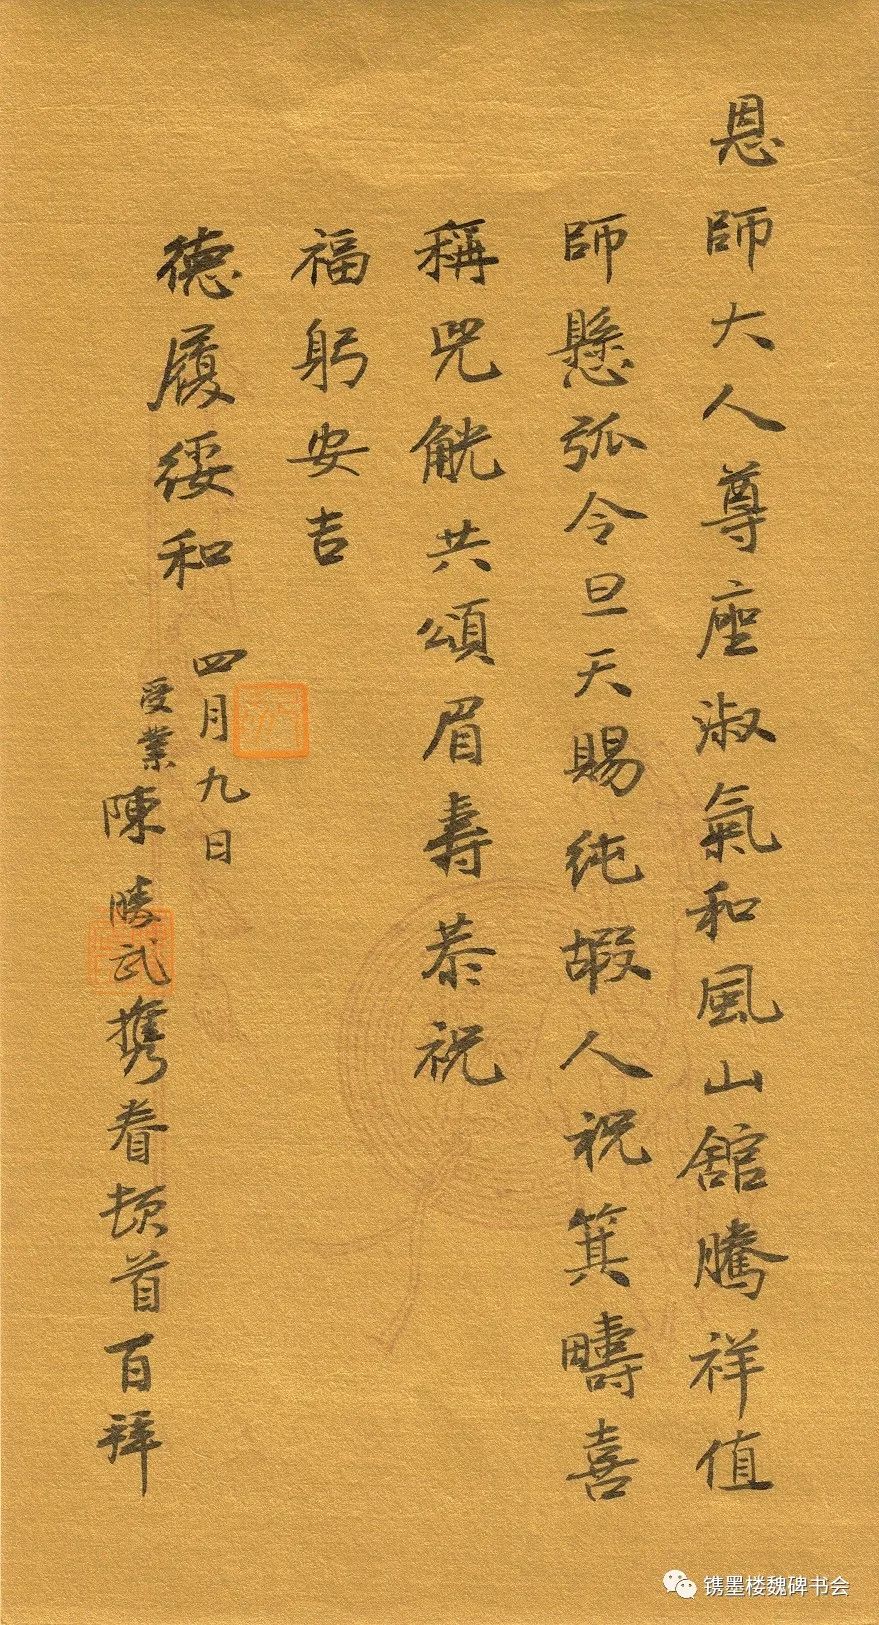 恩師大人尊座淑氣和風山館騰祥值
師懸弧令旦天賜純嘏人祝箕疇喜
稱兕觥共頌眉壽恭祝
福躬安吉
德履綏和
四月九日
受業陳勝武攜眷頓首百拜
镌墨楼魏碑书会